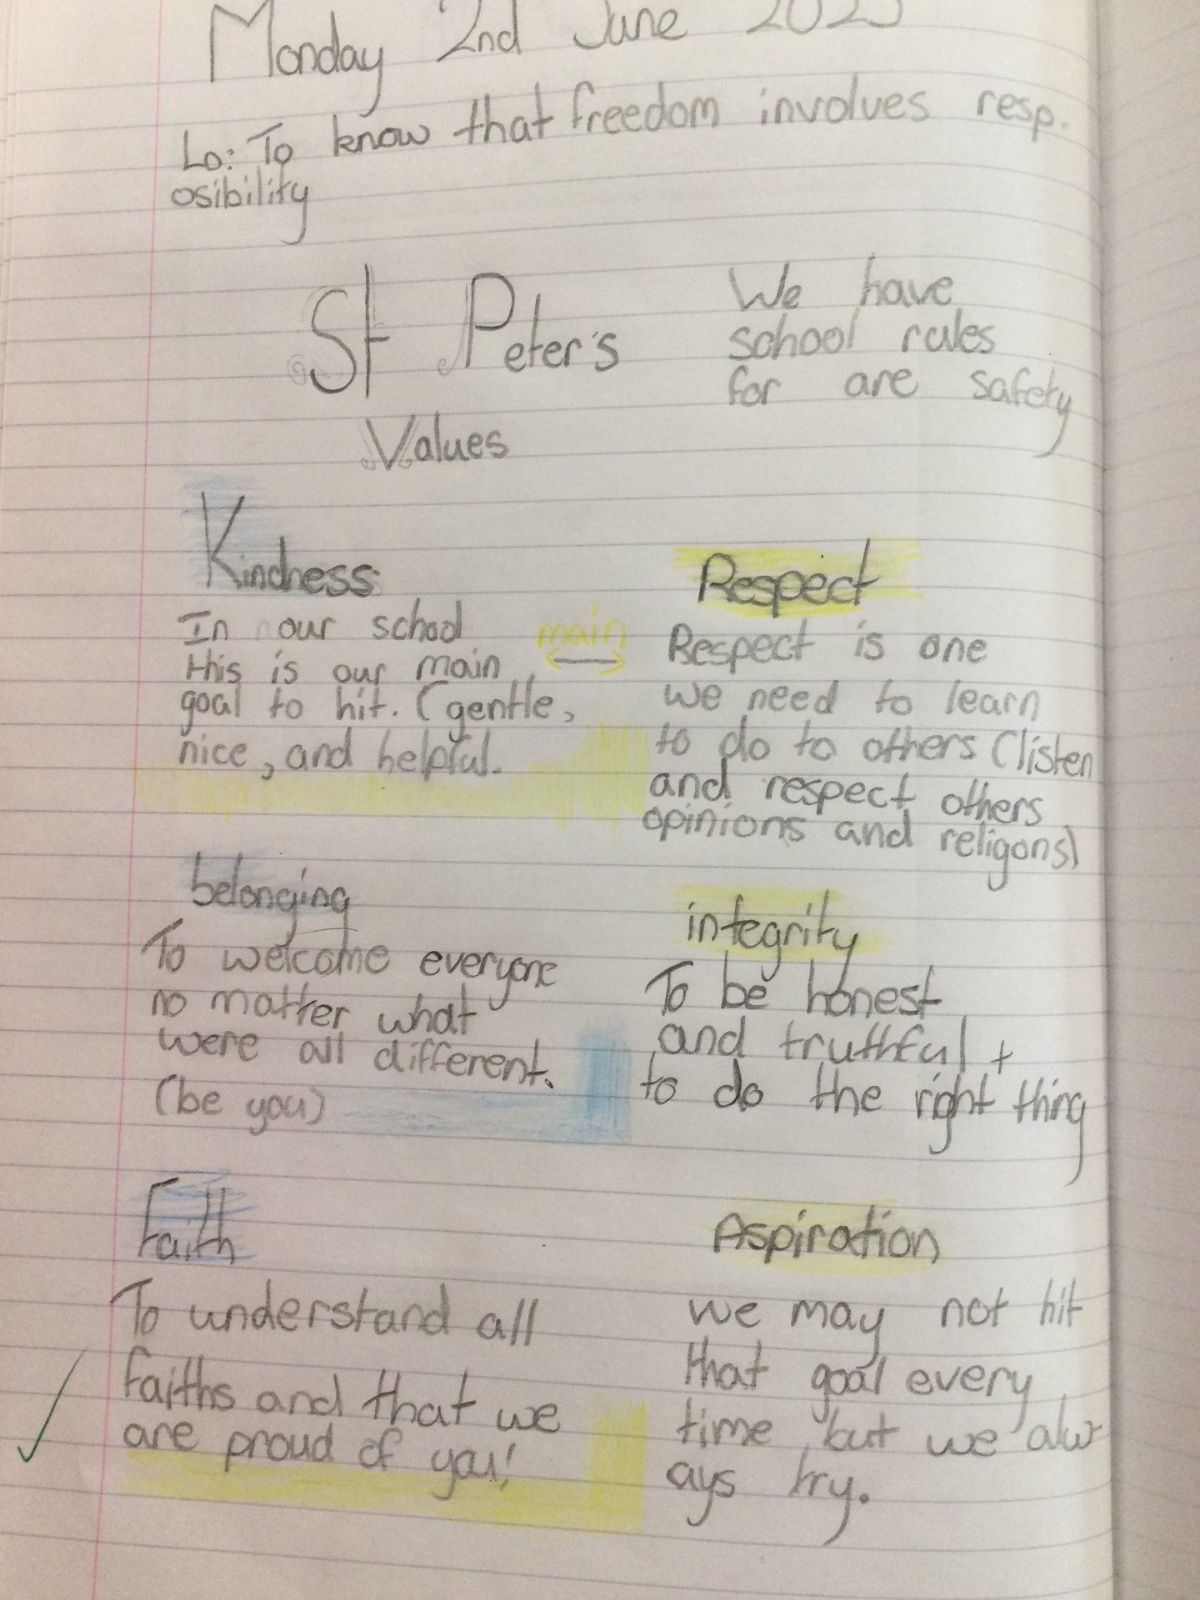 Monday 2nd June 2025
Lo: To know that freedom involves resp.
osibility
St Peter's
Values
We have
school rules
for are safety
Kindness:
In our school
this is our main
goal to hit. (gentle,
nice, and helpful.
main
Respect
Respect is one
we need to learn
to do to others (listen
and respect others
opinions and religons)
belonging
To welcome everyone
no matter what
were all different.
(be you)
integrity
To be honest
and truthful +
to do the right thing
Faith
To understand all
faiths and that we
are proud of you!
Aspiration
we may not hit
that goal every
time, but we alw
ays try.